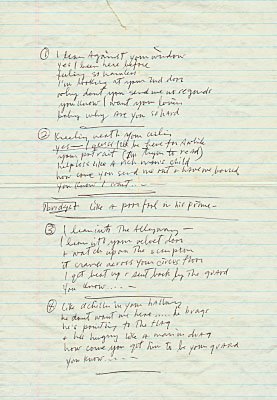 ① I lean Against your window
yes I been here before
feeling so harmless
I'm looking at your 2nd door
why dont you send me no regards
you know I want your lovin
baby why Are you so hard
② Kneeling neath your ceiling
yes - I guess I'll be here for Awhile
your portrait (I'm tryin to read)
helpless like A rich man's child
how come you send me out & have me barred
you know I want . . . -
Bridge) like a poor fool in his prime -
③ I lean into the Alleyway -
I lean into your velvet door
& watch upon the scorpion
it crawls across your circus floor
I get beat up & sent back by the guard
You know . . . . -
④ Like achilles in your hallway
he dont want me here ..... he brags
he's pointing to the flag
& he's hungry like a man in drag
how come you get him to be your guard
You know . . . . -